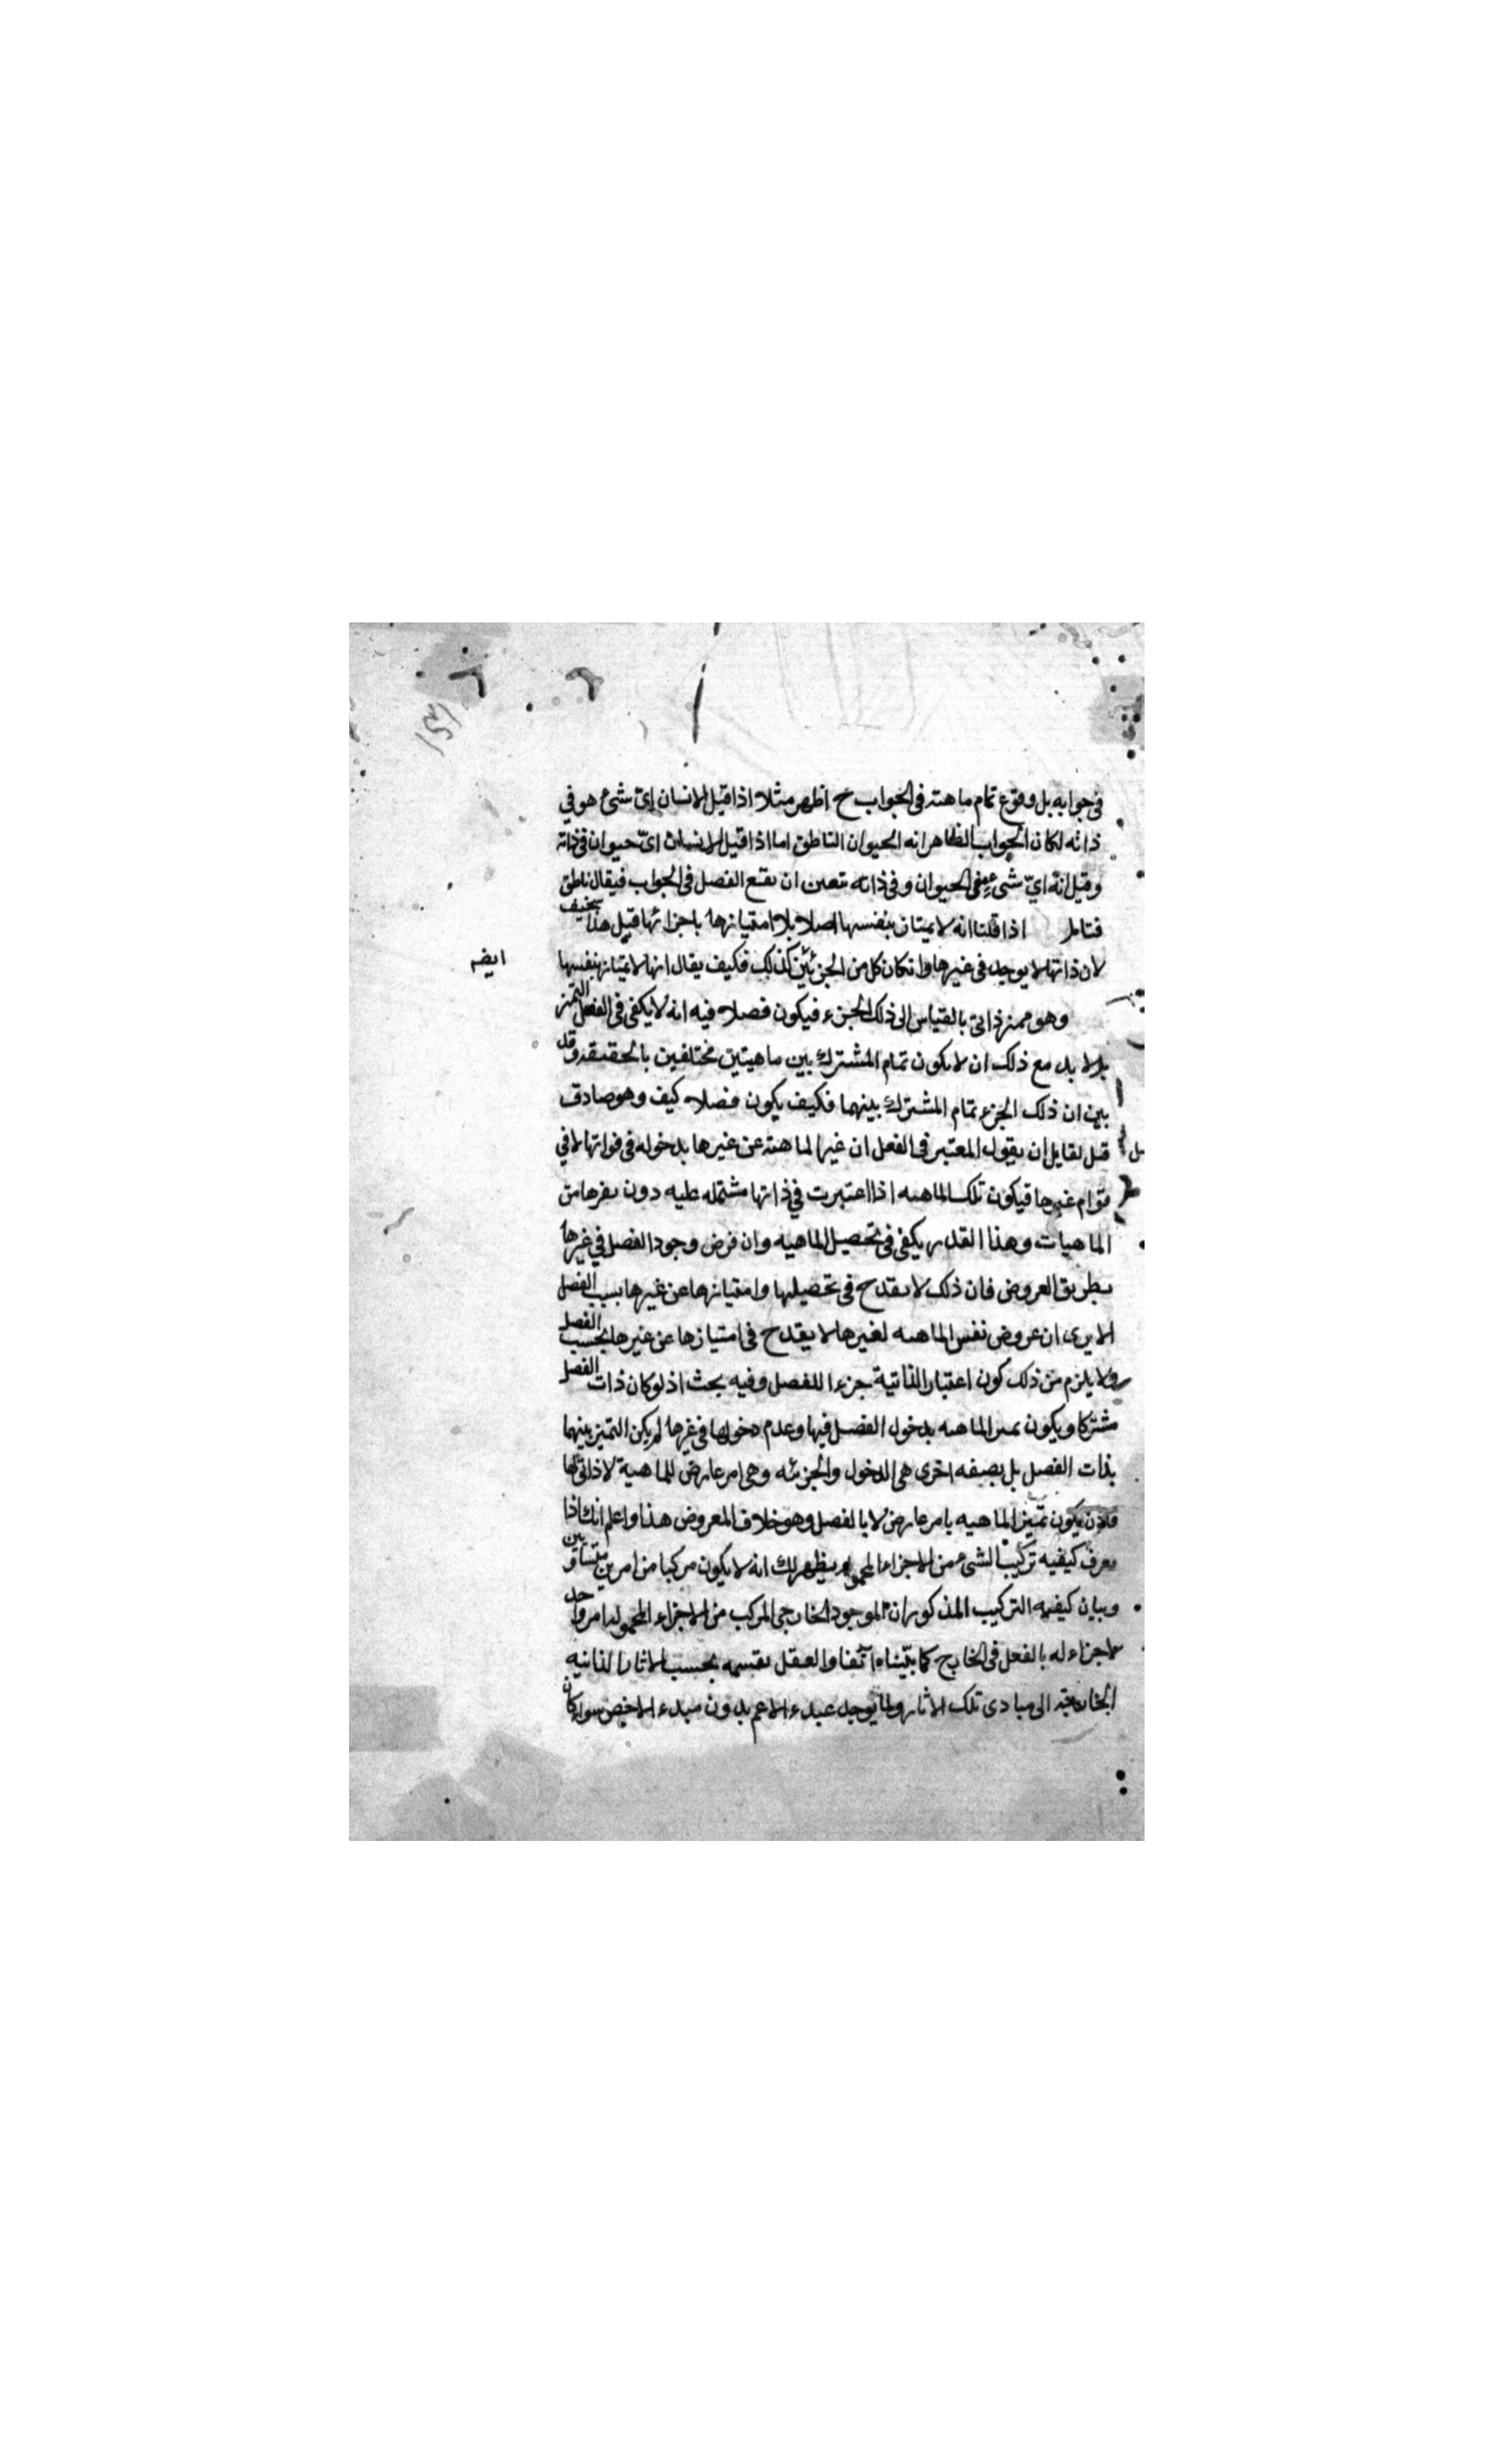 فى جوابه بل وقوع تمام ماهيته فى الجواب ح اظهر مثلا اذا قيل الانسان اىّ شىء هو في
ذاته لكان الجواب الظاهر انه الحيوان الناطق اما اذا قيل الانسان اىّ حيوان فى ذاته
وقيل انه اىّ شىء عنى الحيوان وفى ذاته يتعين ان يقع الفصل فى الجواب فيقال ناطق
فتامل اذا قلنا انه لا يمتاز بنفسها اصلا بلا امتيازها باجزائها قيل هذا سخيف
لان ذاتها لا يوجد فى غيرها وان كان كل من الجزئين كذلك فكيف يقال انها لا يمتاز بنفسها
ايضه
وهو مميز ذاتى بالقياس الى ذلك الجزء فيكون فصلا فيه انه لا يكفى فى الفصل التميز
بل لا بد مع ذلك ان لا يكون تمام المشترك بين ماهيتين مختلفين بالحقيقه وقد
بين ان ذلك الجزء تمام المشترك بينهما فكيف يكون فصلا كيف وهو صادق
قيل لقايل ان يقول المعتبر فى الفصل ان الماهية عن غيرها بدخوله فى قوامها لا في
قوام غيرها فيكون تلك الماهيه اذا اعتبرت في ذاتها مشتمله عليه دون غيرها من
الماهيات وهذا القدر يكفى فى تحصيل الماهيه وان فرض وجود الفصل في غيرها
بطريق العروض فان ذلك لا يقدح فى تحصيلها وامتيازها عن غيرها بسبب الفصل
الا يرى ان عروض نفس الماهيه لغيرها لا يقدح فى امتيازها عن غيرها بحسب الفصل
ولا يلزم من ذلك كون اعتبار الذاتية جزءا للفصل وفيه بحث اذ لو كان ذات الفصل
مشتركا ويكون تميز الماهيه بدخول الفصل فيها وعدم دخولها فى غيرها لم يكن التميز بينهما
بذات الفصل بل بصفه اخرى هى الدخول والجزئيه وهى امر عارض للماهية لا ذاتى لها
فاذن يكون تميز الماهيه بامر عارض لا بالفصل وهو خلاف المعروض هذا واعلم انك اذا
تعرف كيفيه تركيب الشىء من الاجزاء المحموله يظهر لك انه لا يكون مركبا من امرين متساويين
وبيان كيفيه التركيب المذكور ان الموجود الخارجى المركب من الاجزاء المحموله امر واحد
لا جزاء له بالفعل فى الخارج كما بيّناه آنفا والعقل يقسمه بحسب الاثار الذاتيه
الخارجيه الى مبادى تلك الاثار ولما يوجد مبدء الاعم بدون مبدء الاخص سواء كان